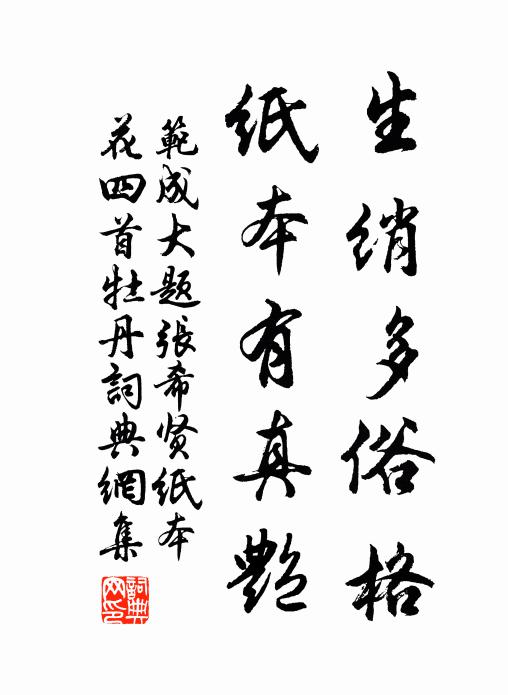 生绡多俗格
纸本有真艷
範成大题張希贤纸本
花四首牡丹詞典網集
詞典
网印